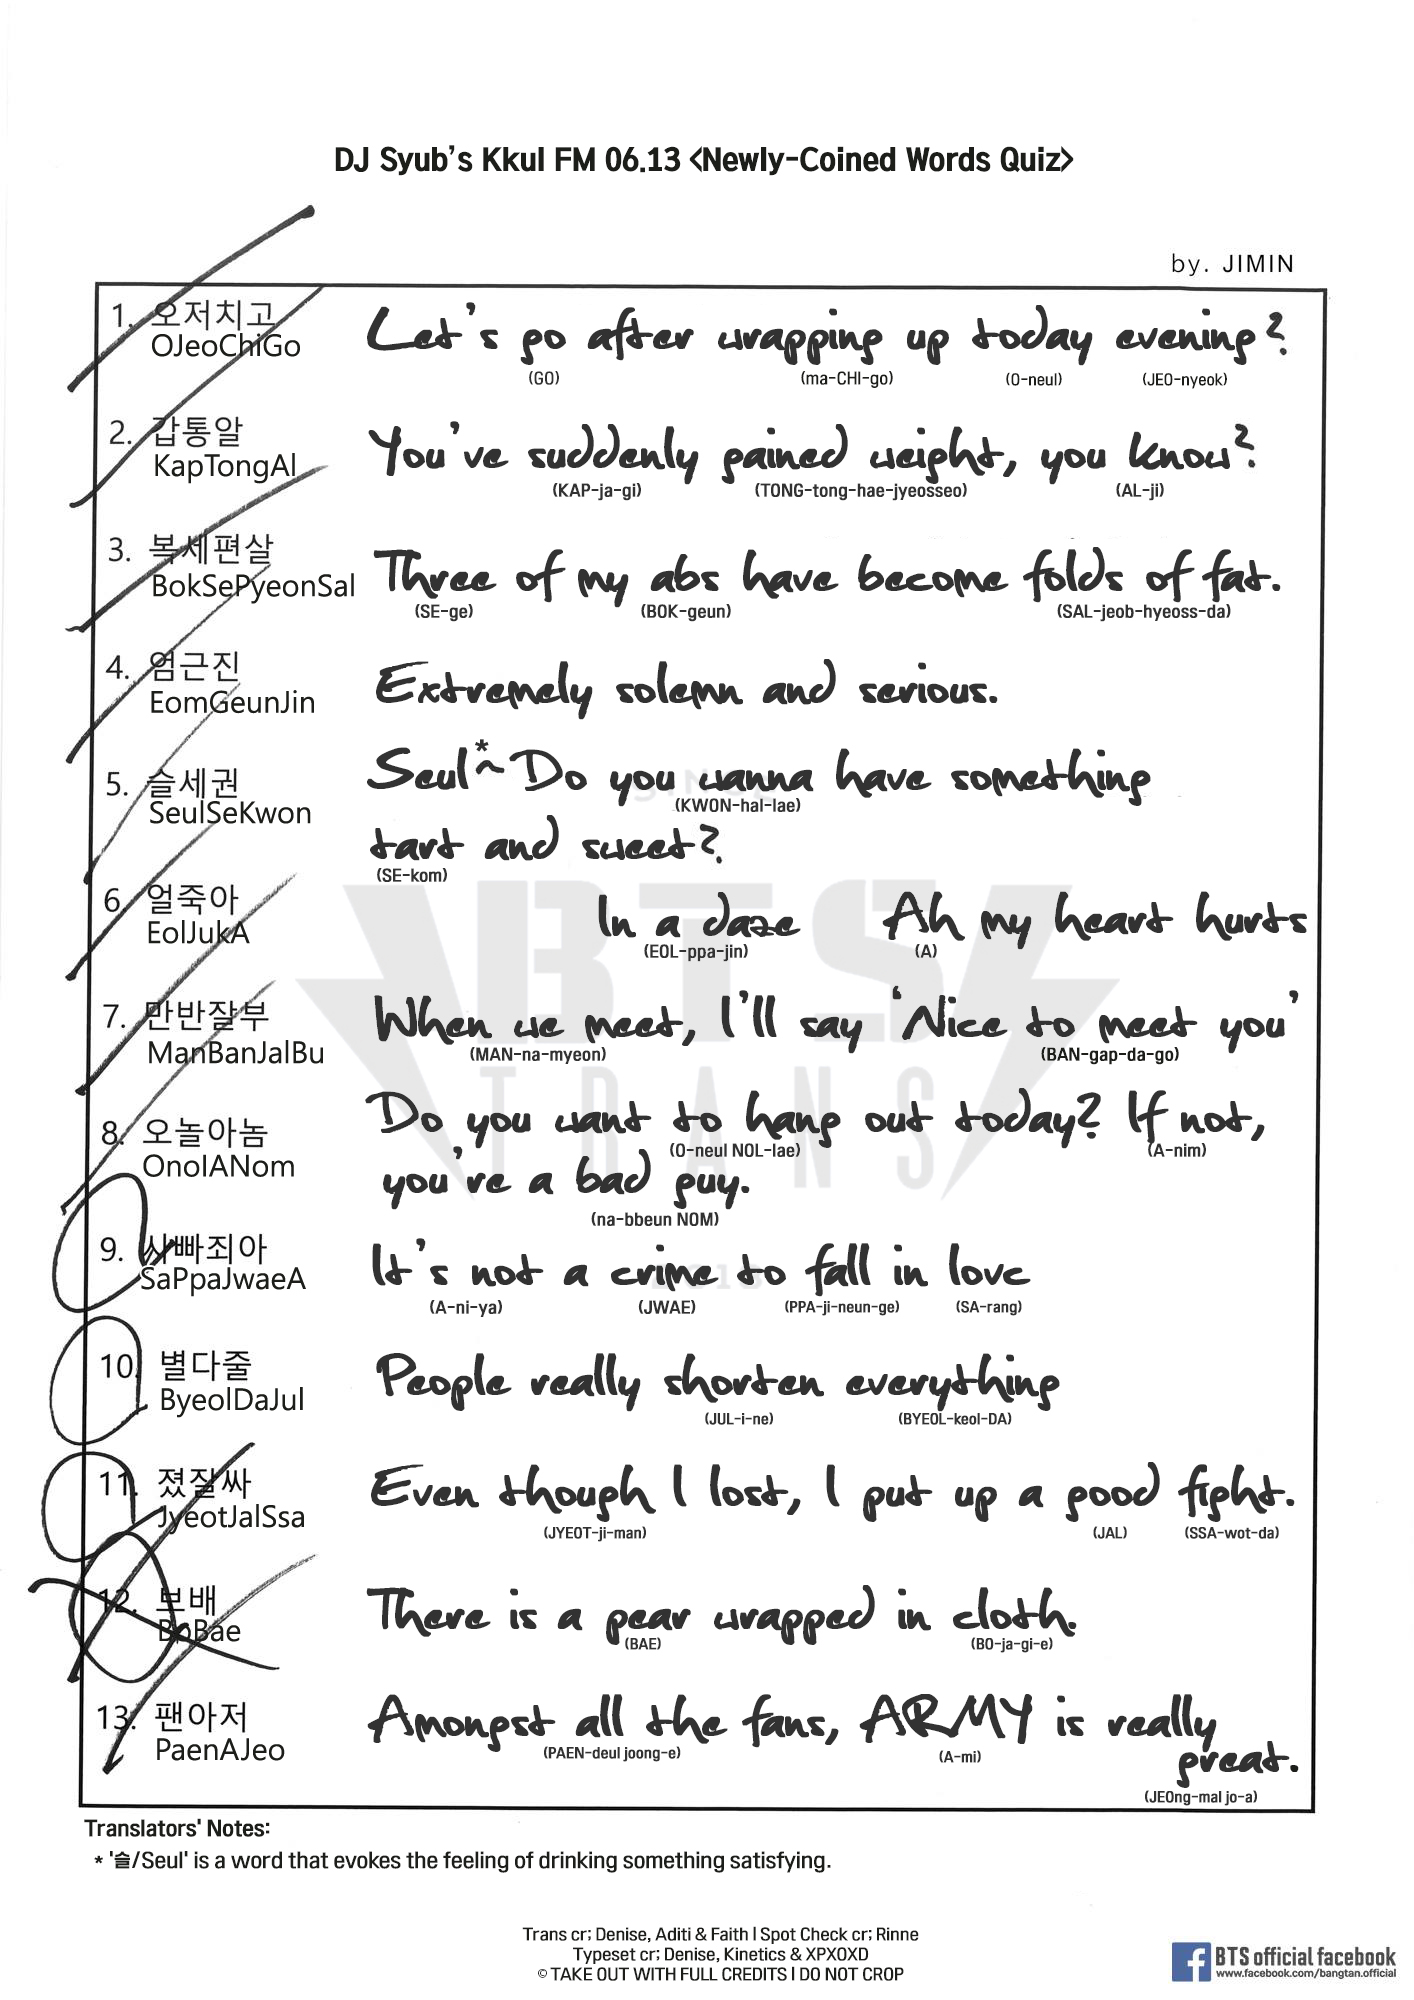 DJ Syub's Kkul FM 06.13 <Newly-Coined Words Quiz>
by. JIMIN
1. 오저치고
OJeoChiGo
Let's go after wrapping up today evening?
(GO) (ma-CHI-go) (O-neul) (JEO-nyeok)
2. 갑통알
KapTongAl
You've suddenly gained weight, you know?
(KAP-ja-gi) (TONG-tong-hae-jyeosseo) (AL-ji)
3. 복세편살
BokSePyeonSal
Three of my abs have become folds of fat.
(SE-ge) (BOK-geun) (SAL-jeob-hyeoss-da)
4. 엄근진
EomGeunJin
Extremely solemn and serious.
5. 슬세권
SeulSeKwon
Seul*~ Do you wanna have something
(KWON-hal-lae)
tart and sweet?
(SE-kom)
6 얼죽아
EolJukA
In a daze Ah my heart hurts
(EOL-ppa-jin) (A)
7. 만반잘부
ManBanJalBu
When we meet, I'll say 'Nice to meet you'
(MAN-na-myeon) (BAN-gap-da-go)
8. 오놀아놈
OnolANom
Do you want to hang out today? If not,
(O-neul NOL-lae) (A-nim)
you're a bad guy.
(na-bbeun NOM)
9. 사빠죄아
SaPpaJwaeA
It's not a crime to fall in love
(A-ni-ya) (JWAE) (PPA-ji-neun-ge) (SA-rang)
10. 별다줄
ByeolDaJul
People really shorten everything
(JUL-i-ne) (BYEOL-keol-DA)
11. 졌잘싸
JyeotJalSsa
Even though I lost, I put up a good fight.
(JYEOT-ji-man) (JAL) (SSA-wot-da)
12. 보배
BoBae
There is a pear wrapped in cloth.
(BAE) (BO-ja-gi-e)
13. 팬아저
PaenAJeo
Amongst all the fans, ARMY is really
great.
(PAEN-deul joong-e) (A-mi)
(JEOng-mal jo-a)
BTS
TRANS
Translators' Notes:
* '슬/Seul' is a word that evokes the feeling of drinking something satisfying.
Trans cr; Denise, Aditi & Faith | Spot Check cr; Rinne
Typeset cr; Denise, Kinetics & XPXOXD
© TAKE OUT WITH FULL CREDITS | DO NOT CROP
BTS official facebook
www.facebook.com/bangtan.official